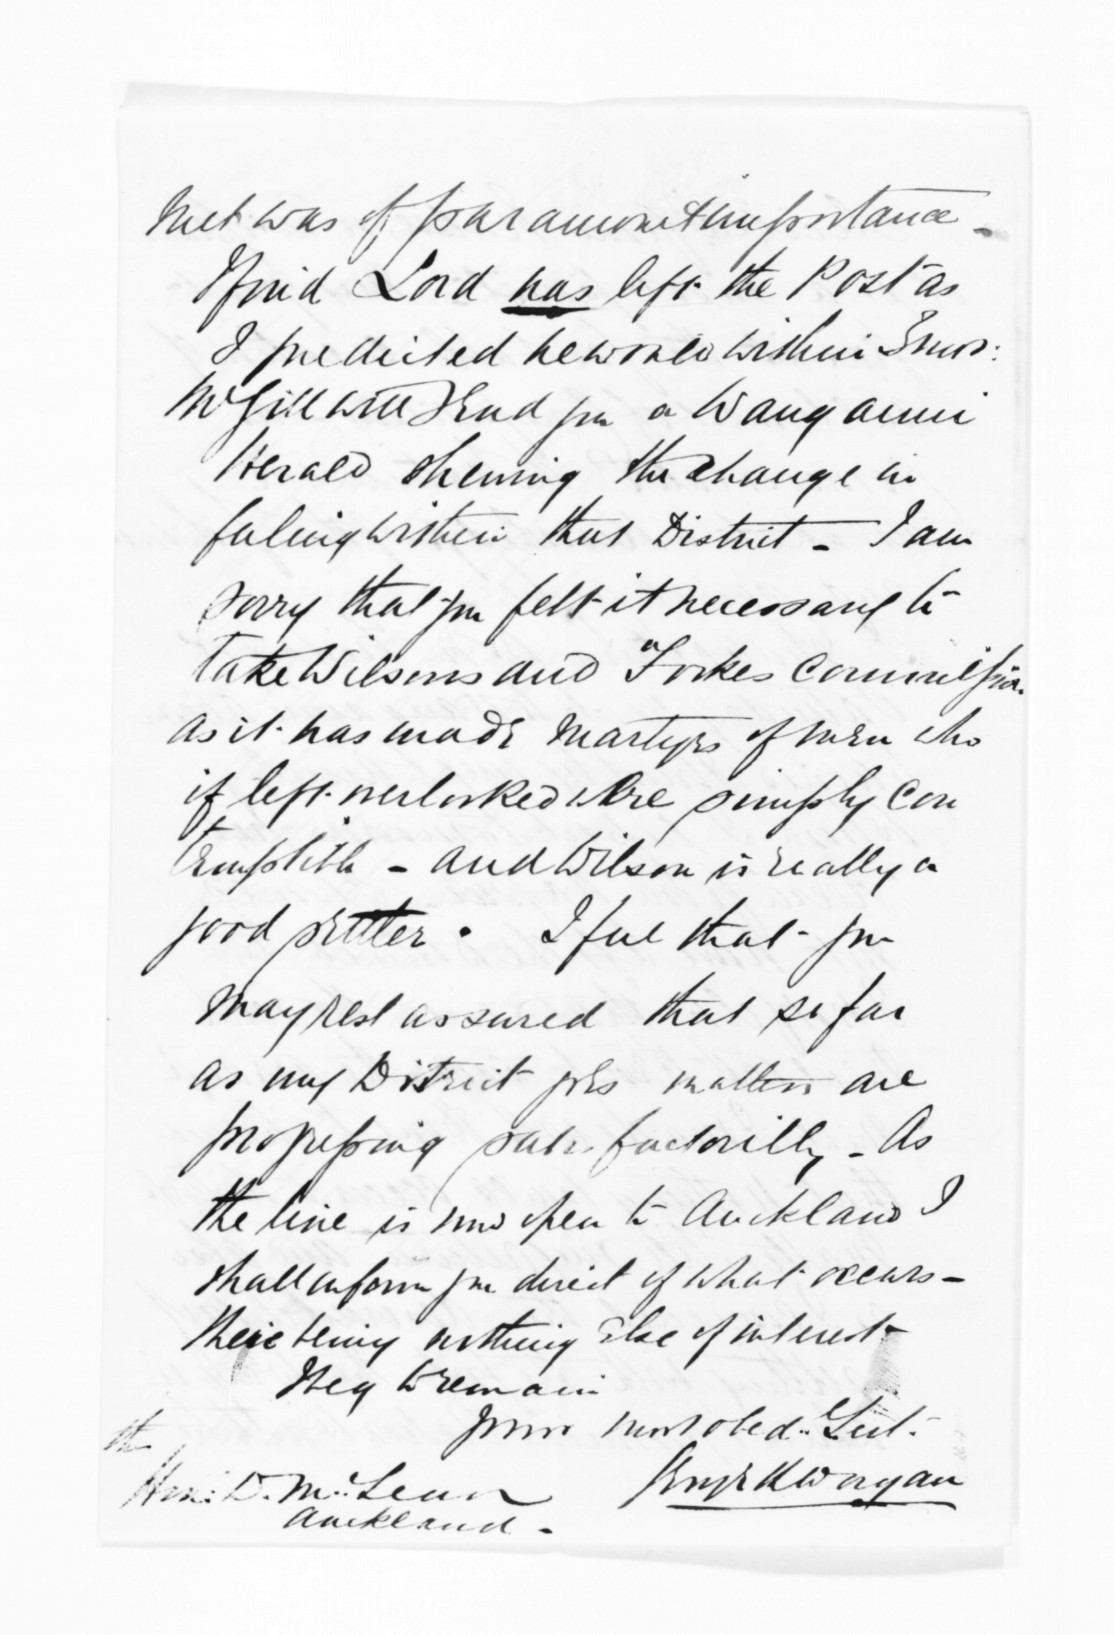 met was of paramount importance -
I find Lord has left the Post as
I predicted he would within 3 mos:
McGill will send you a Wanganui
Herald shewing the change in
feeling within that District - I am
sorry that you felt it necessary to
take Wilsons and Fookes Commission
as it has made martyrs of men who
if left overlooked were simply con
temptible - and Wilson is really a
good settler. I feel that you
may rest assured that so far
as my District goes matters are
progressing satisfactorilly - As
the line is now open to Auckland I
shall inform you direct of what occurs -
there being nothing else of interest
I beg to remain
your most obed.. Sevt.
the
Hon: D. McLean
George Worgan
Auckland -